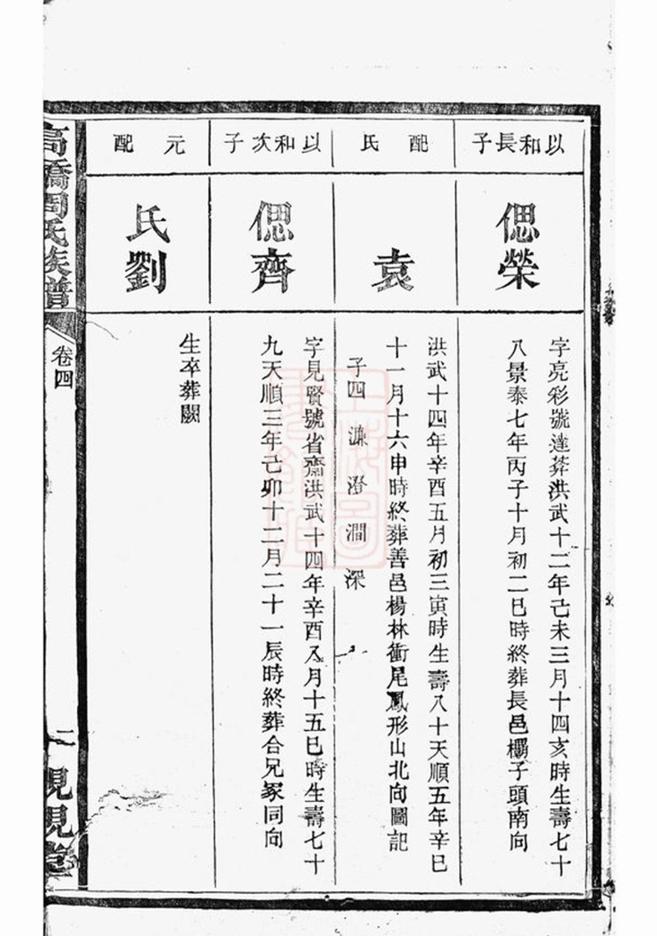 以和長子
偲榮
字亮彩號達菴洪武十二年己未三月十四亥時生壽七十
八景泰七年丙子十月初二巳時終葬長邑欛子頭南向
配氏
袁
洪武十四年辛酉五月初三寅時生壽八十天順五年辛巳
十一月十六申時終葬善邑楊林衝尾鳳形山北向圖記
子四 濂 澄 澗 深
以和次子
偲齊
字見賢號省齋洪武十四年辛酉八月十五巳時生壽七十
九天順三年己卯十二月二十一辰時終葬合兄冢同向
元配
劉氏
生卒葬闕
高橋周氏族譜
卷四
二